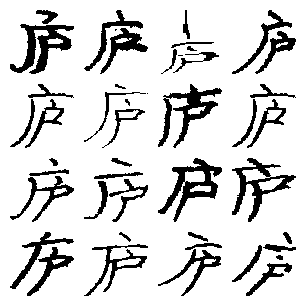 庐庐庐庐
庐庐庐庐
庐庐庐庐
庐庐庐庐